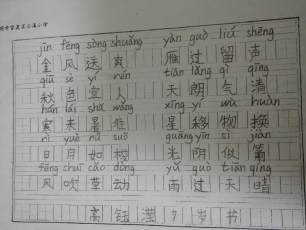 jīn fēng sòng shuǎng yàn guò liú shēng
金风送爽 雁过留声
qiū sè yí rén tiān lǎng qì qīng
秋色宜人 天朗气清
hán lái shǔ wǎng xīng yí wù huàn
寒来暑往 星移物换
rì yuè rú suō guāng yīn sì jiàn
日月如梭 光阴似箭
fēng chuī cǎo dòng yǔ guò tiān qíng
风吹草动 雨过天晴
高钰滢 7岁书